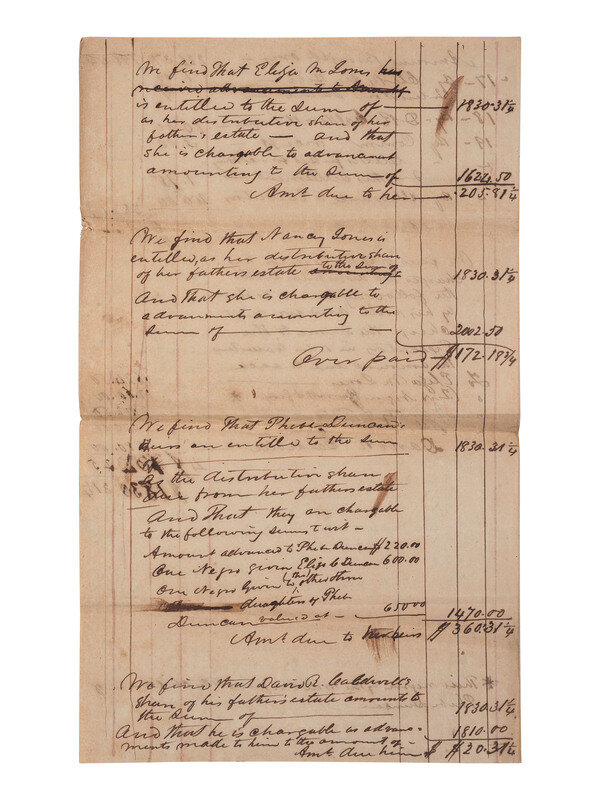 We find That Eliza M Jones has
received advancements to Amount of
is entitled to the Sum of — 1830.31¼
as her distributive share of her
father's estate — and that
she is chargable to advancement
amounting to the Sum of 1624.50
Amt due to her — 205.81¼
We find that Nancy Jones is
entitled, as her distributive share
of her fathers estate amounting to the Sum of 1830.31¼
And That she is chargable to
advancments amounting to the
Sum of — 2002.50
Over paid — $172.18¾
We find That Phebe Duncan's
heirs are entitled to the Sum 1830.31¼
As the distributive share
due from her fathers estate
And That they are chargable
to the following Sums to wit —
Amount advanced to Phebe Duncan $220.00
One Negro given Eliza C Duncan 600.00
One Negro Given to the other three
daughters of Phebe
Duncan valued at — 650.00 1470.00
Amt. due to heirs $360.31¼
We find that David R. Caldwell's
share of his father's estate amounts to
the Sum of 1830.31¼
And that he is chargable as advance-
ments made to him to the amount of — 1810.00
Amt due him $20.31¼